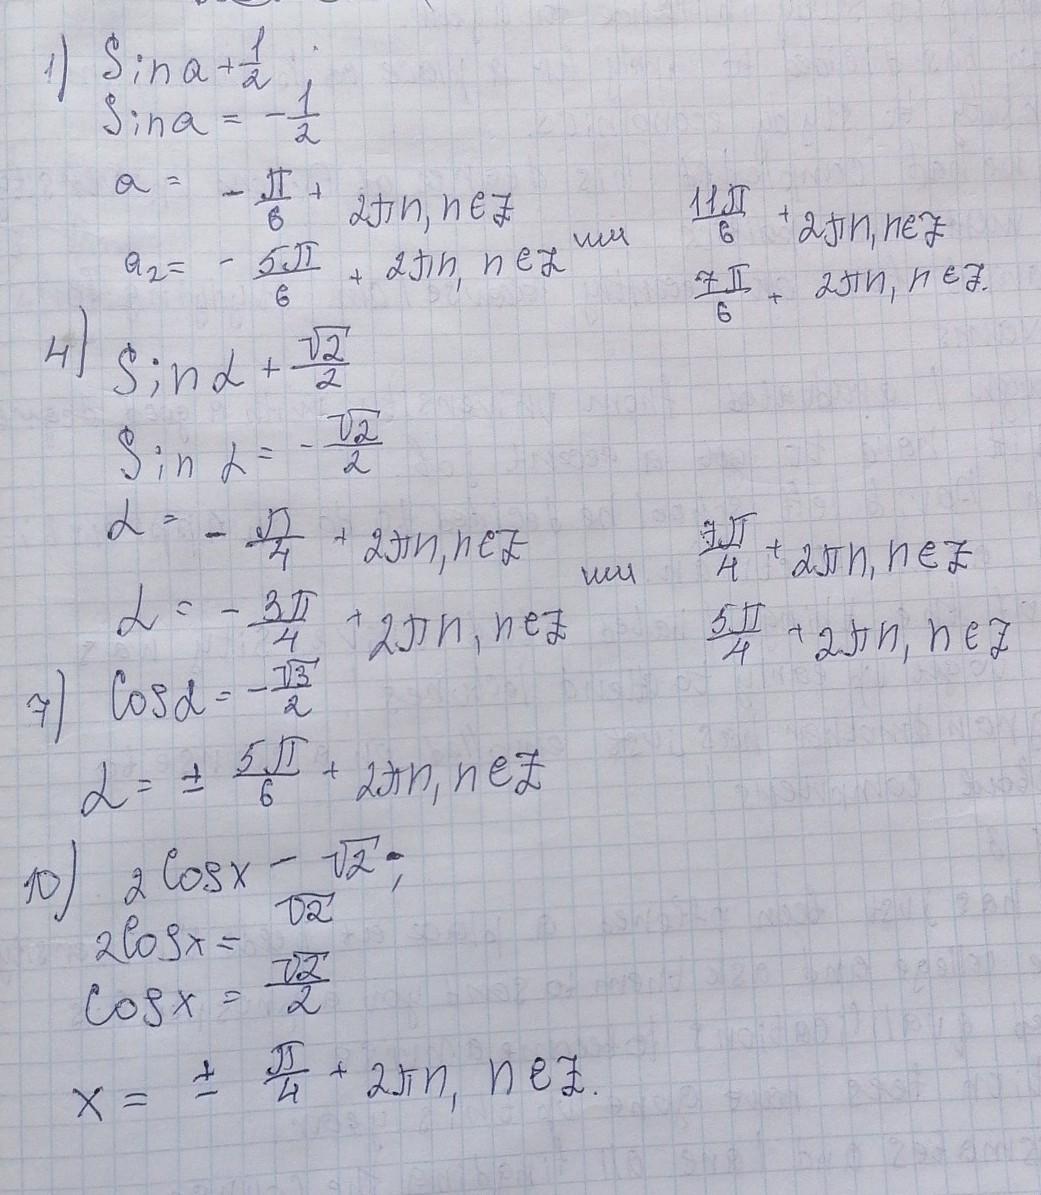 1) Sin a + 1/2
Sin a = - 1/2
a = - π/6 + 2πn, n∈Z или 11π/6 + 2πn, n∈Z
a2 = - 5π/6 + 2πn, n∈Z 7π/6 + 2πn, n∈Z.
4) Sin α + √2/2
Sin α = - √2/2
α = - π/4 + 2πn, n∈Z или 7π/4 + 2πn, n∈Z
α = - 3π/4 + 2πn, n∈Z 5π/4 + 2πn, n∈Z
7) Cos α = - √3/2
α = ± 5π/6 + 2πn, n∈Z
10) 2 Cos x - √2;
2Cos x = √2
Cos x = √2/2
x = ± π/4 + 2πn, n∈Z.